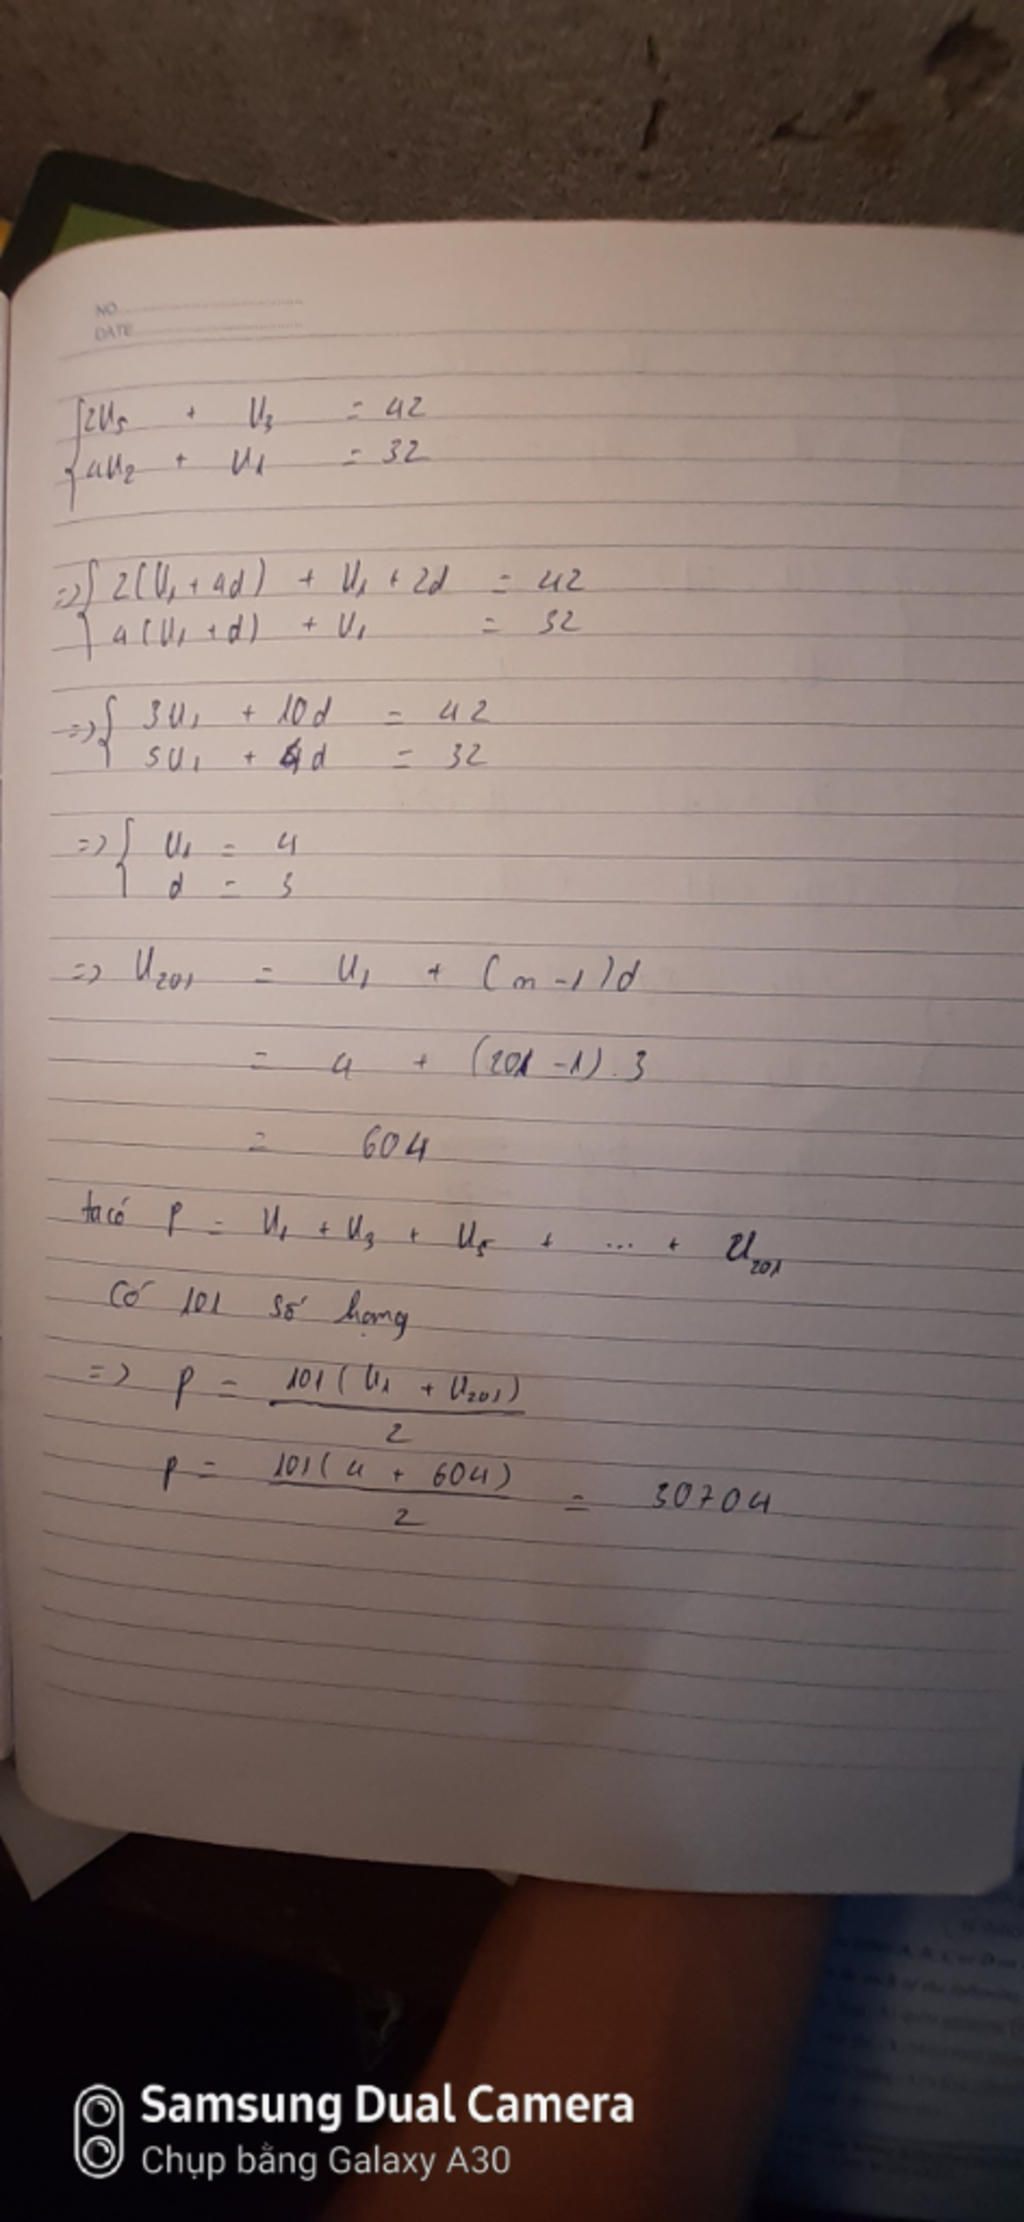 NO
DATE
2U5 + U3 = 42
4U2 + U1 = 32
=> 2(U1 + 4d) + U1 + 2d = 42
4(U1 + d) + U1 = 32
=> 3U1 + 10d = 42
5U1 + 4d = 32
=> U1 = 4
d = 3
=> U201 = U1 + (n-1)d
= 4 + (201-1).3
= 604
ta có P = U1 + U3 + U5 + ... + U201
Có 101 số hạng
=> P = 101(U1 + U201) / 2
P = 101(4 + 604) / 2 = 30704
Samsung Dual Camera
Chụp bằng Galaxy A30